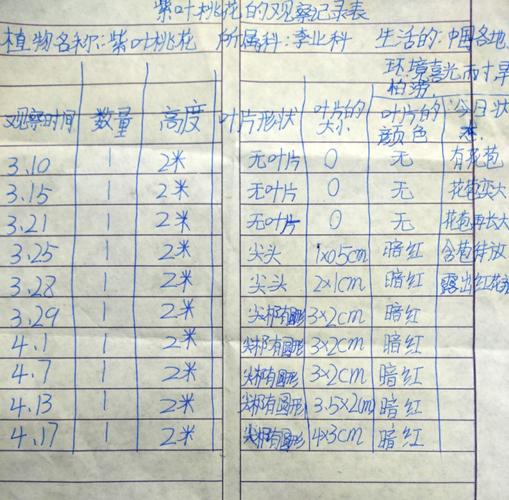 紫叶桃花的观察记录表
植物名称:紫叶桃花 所属科:李业科 生活的:中国各地
环境喜光耐旱
怕涝
观察时间 数量 高度 叶片形状 叶片的大小 叶片的颜色 今日状
3.10 1 2米 无叶片 0 无 有花苞
3.15 1 2米 无叶片 0 无 花苞变大
3.21 1 2米 无叶片 0 无 花苞再长大
3.25 1 2米 尖头 1x05cm 暗红 含苞待放
3.28 1 2米 尖头 2x1cm 暗红 露出红花
3.29 1 2米 3x2cm 暗红
4.1 1 2米 3x2cm 暗红
4.7 1 2米 3x2cm 暗红
4.13 1 2米 3.5x2cm 暗红
4.17 1 2米 4x3cm 暗红